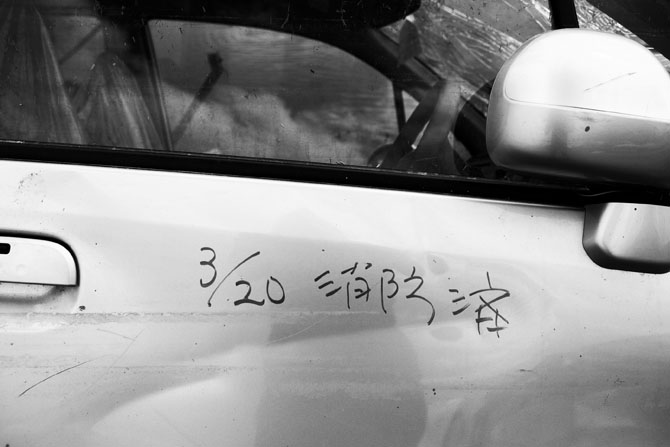 3/20 消防済